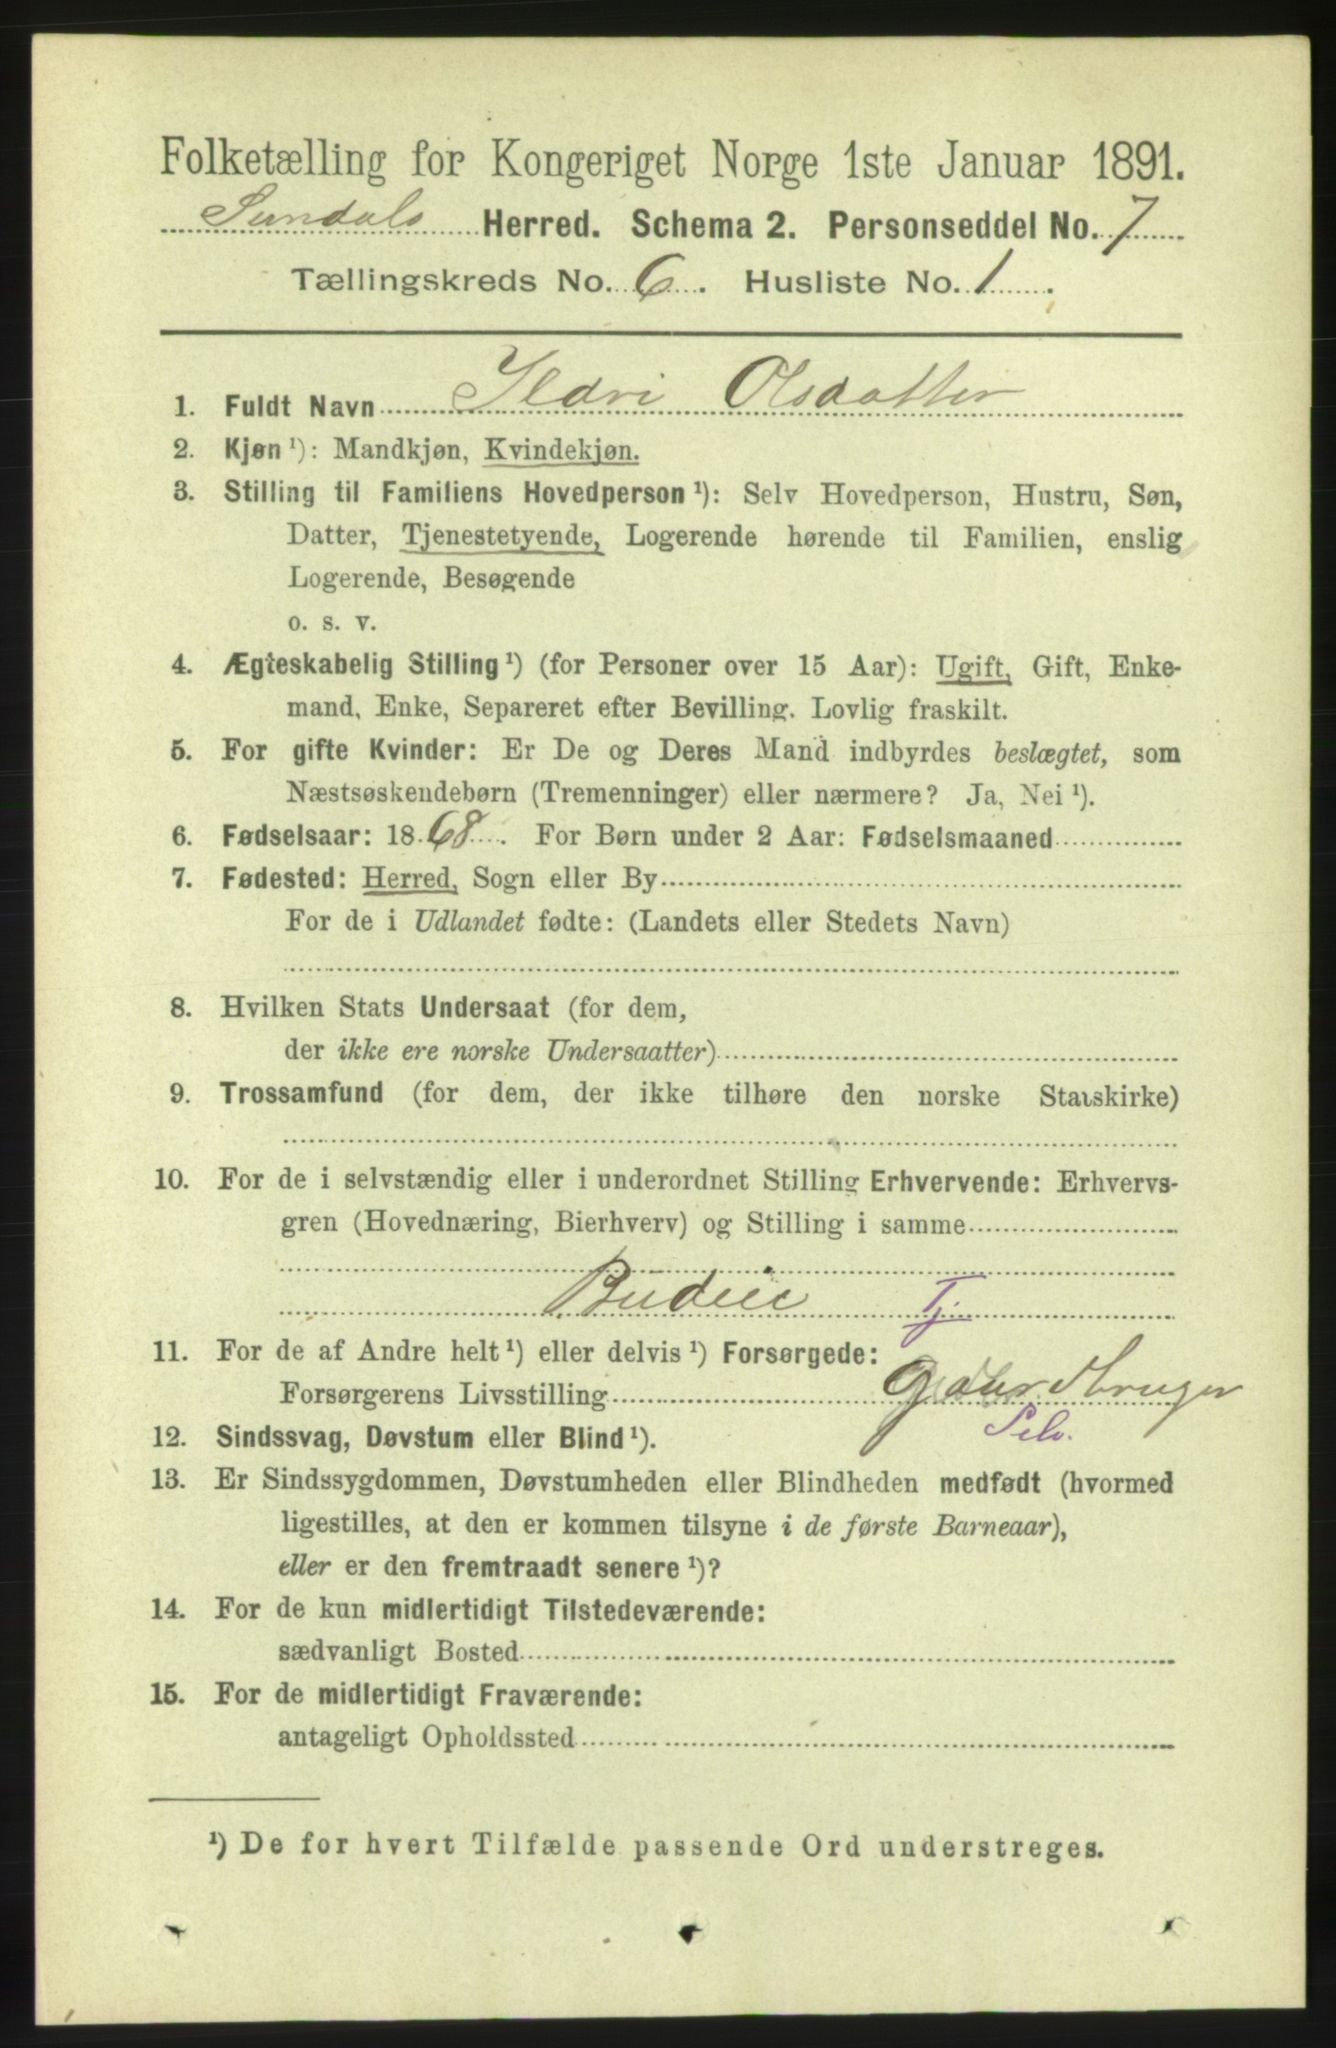 Folketælling for Kongeriget Norge 1ste Januar 1891.
Sundals Herred. Schema 2. Personseddel No. 7
Tællingskreds No. 6. Husliste No. 1.
1. Fuldt Navn Ildri Olsdatter
2. Kjøn ¹): Mandkjøn, Kvindekjøn.
3. Stilling til Familiens Hovedperson ¹): Selv Hovedperson, Hustru, Søn,
Datter, Tjenestetyende, Logerende hørende til Familien, enslig
Logerende, Besøgende
o. s. v.
4. Ægteskabelig Stilling ¹) (for Personer over 15 Aar): Ugift, Gift, Enke-
mand, Enke, Separeret efter Bevilling. Lovlig fraskilt.
5. For gifte Kvinder: Er De og Deres Mand indbyrdes beslægtet, som
Næstsøskendebørn (Tremenninger) eller nærmere? Ja, Nei ¹).
6. Fødselsaar: 1868. For Børn under 2 Aar: Fødselsmaaned
7. Fødested: Herred, Sogn eller By
For de i Udlandet fødte: (Landets eller Stedets Navn)
8. Hvilken Stats Undersaat (for dem,
der ikke ere norske Undersaatter)
9. Trossamfund (for dem, der ikke tilhøre den norske Statskirke)
10. For de i selvstændig eller i underordnet Stilling Erhvervende: Erhvervs-
gren (Hovednæring, Bierhverv) og Stilling i samme
Budeie Tj.
11. For de af Andre helt ¹) eller delvis ¹) Forsørgede:
Forsørgerens Livsstilling Gaardbruger
Selv.
12. Sindssvag, Døvstum eller Blind ¹).
13. Er Sindssygdommen, Døvstumheden eller Blindheden medfødt (hvormed
ligestilles, at den er kommen tilsyne i de første Barneaar),
eller er den fremtraadt senere ¹)?
14. For de kun midlertidigt Tilstedeværende:
sædvanligt Bosted
15. For de midlertidigt Fraværende:
antageligt Opholdssted
¹) De for hvert Tilfælde passende Ord understreges.